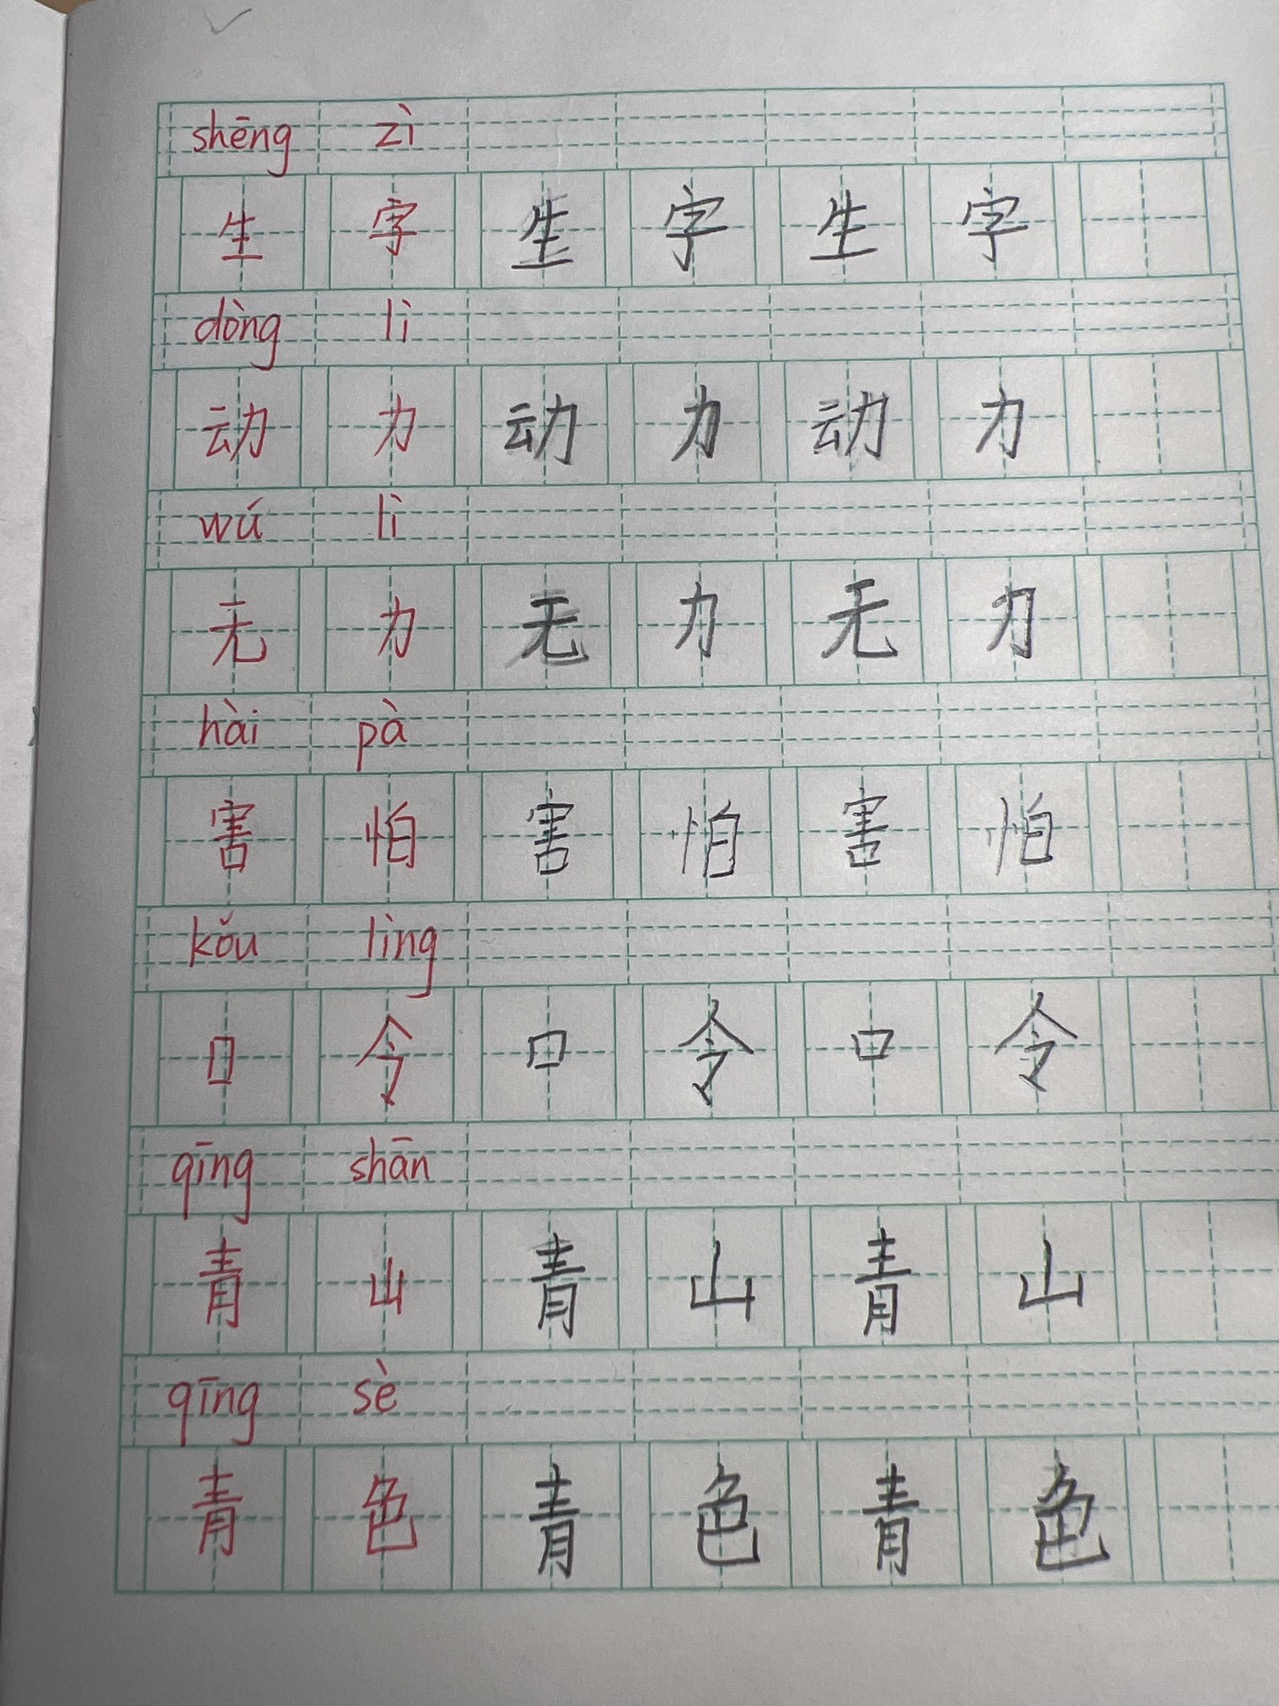 shēng zì
生 字 生 字 生 字
dòng lì
动 力 动 力 动 力
wú lì
无 力 无 力 无 力
hài pà
害 怕 害 怕 害 怕
kǒu lìng
口 令 口 令 口 令
qīng shān
青 山 青 山 青 山
qīng sè
青 色 青 色 青 色